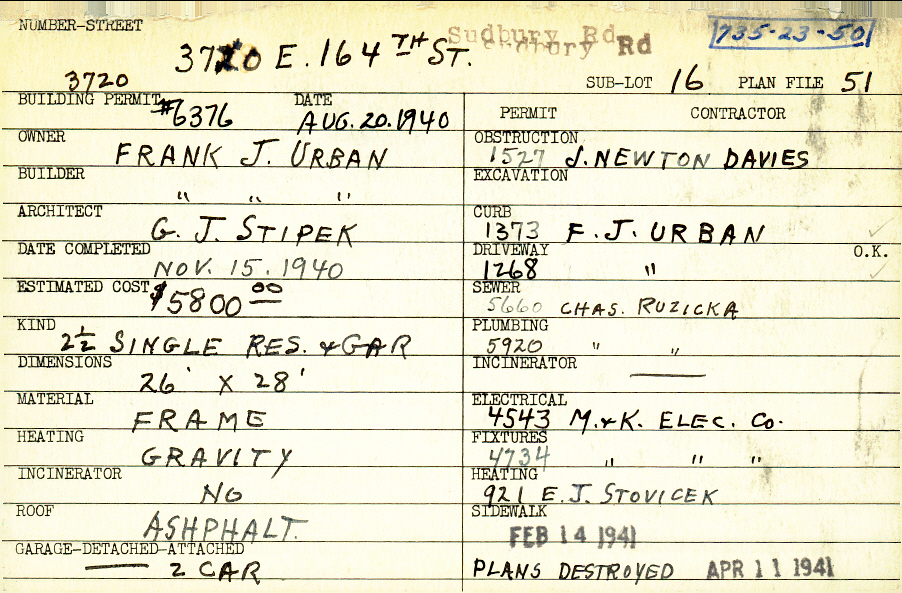 NUMBER-STREET
3720 E. 164TH ST.
Sudbury Rd
Sudbury Rd
735-23-50
3720
SUB-LOT 16 PLAN FILE 51
BUILDING PERMIT #6376 DATE AUG. 20. 1940
PERMIT CONTRACTOR
OWNER FRANK J. URBAN
OBSTRUCTION 1527 J. NEWTON DAVIES
BUILDER " " "
EXCAVATION
ARCHITECT G. J. STIPEK
CURB 1373 F. J. URBAN
DATE COMPLETED NOV. 15. 1940
DRIVEWAY 1268 " O.K.
ESTIMATED COST $5800 00
SEWER 5660 CHAS. RUZICKA
KIND 2½ SINGLE RES. & GAR
PLUMBING 5920 " "
DIMENSIONS 26' X 28'
INCINERATOR —
MATERIAL FRAME
ELECTRICAL 4543 M. & K. ELEC. CO.
HEATING GRAVITY
FIXTURES 4734 " " "
INCINERATOR NO
HEATING 921 E. J. STOVICEK
ROOF ASHPHALT.
SIDEWALK FEB 14 1941
GARAGE-DETACHED-ATTACHED — 2 CAR
PLANS DESTROYED APR 11 1941